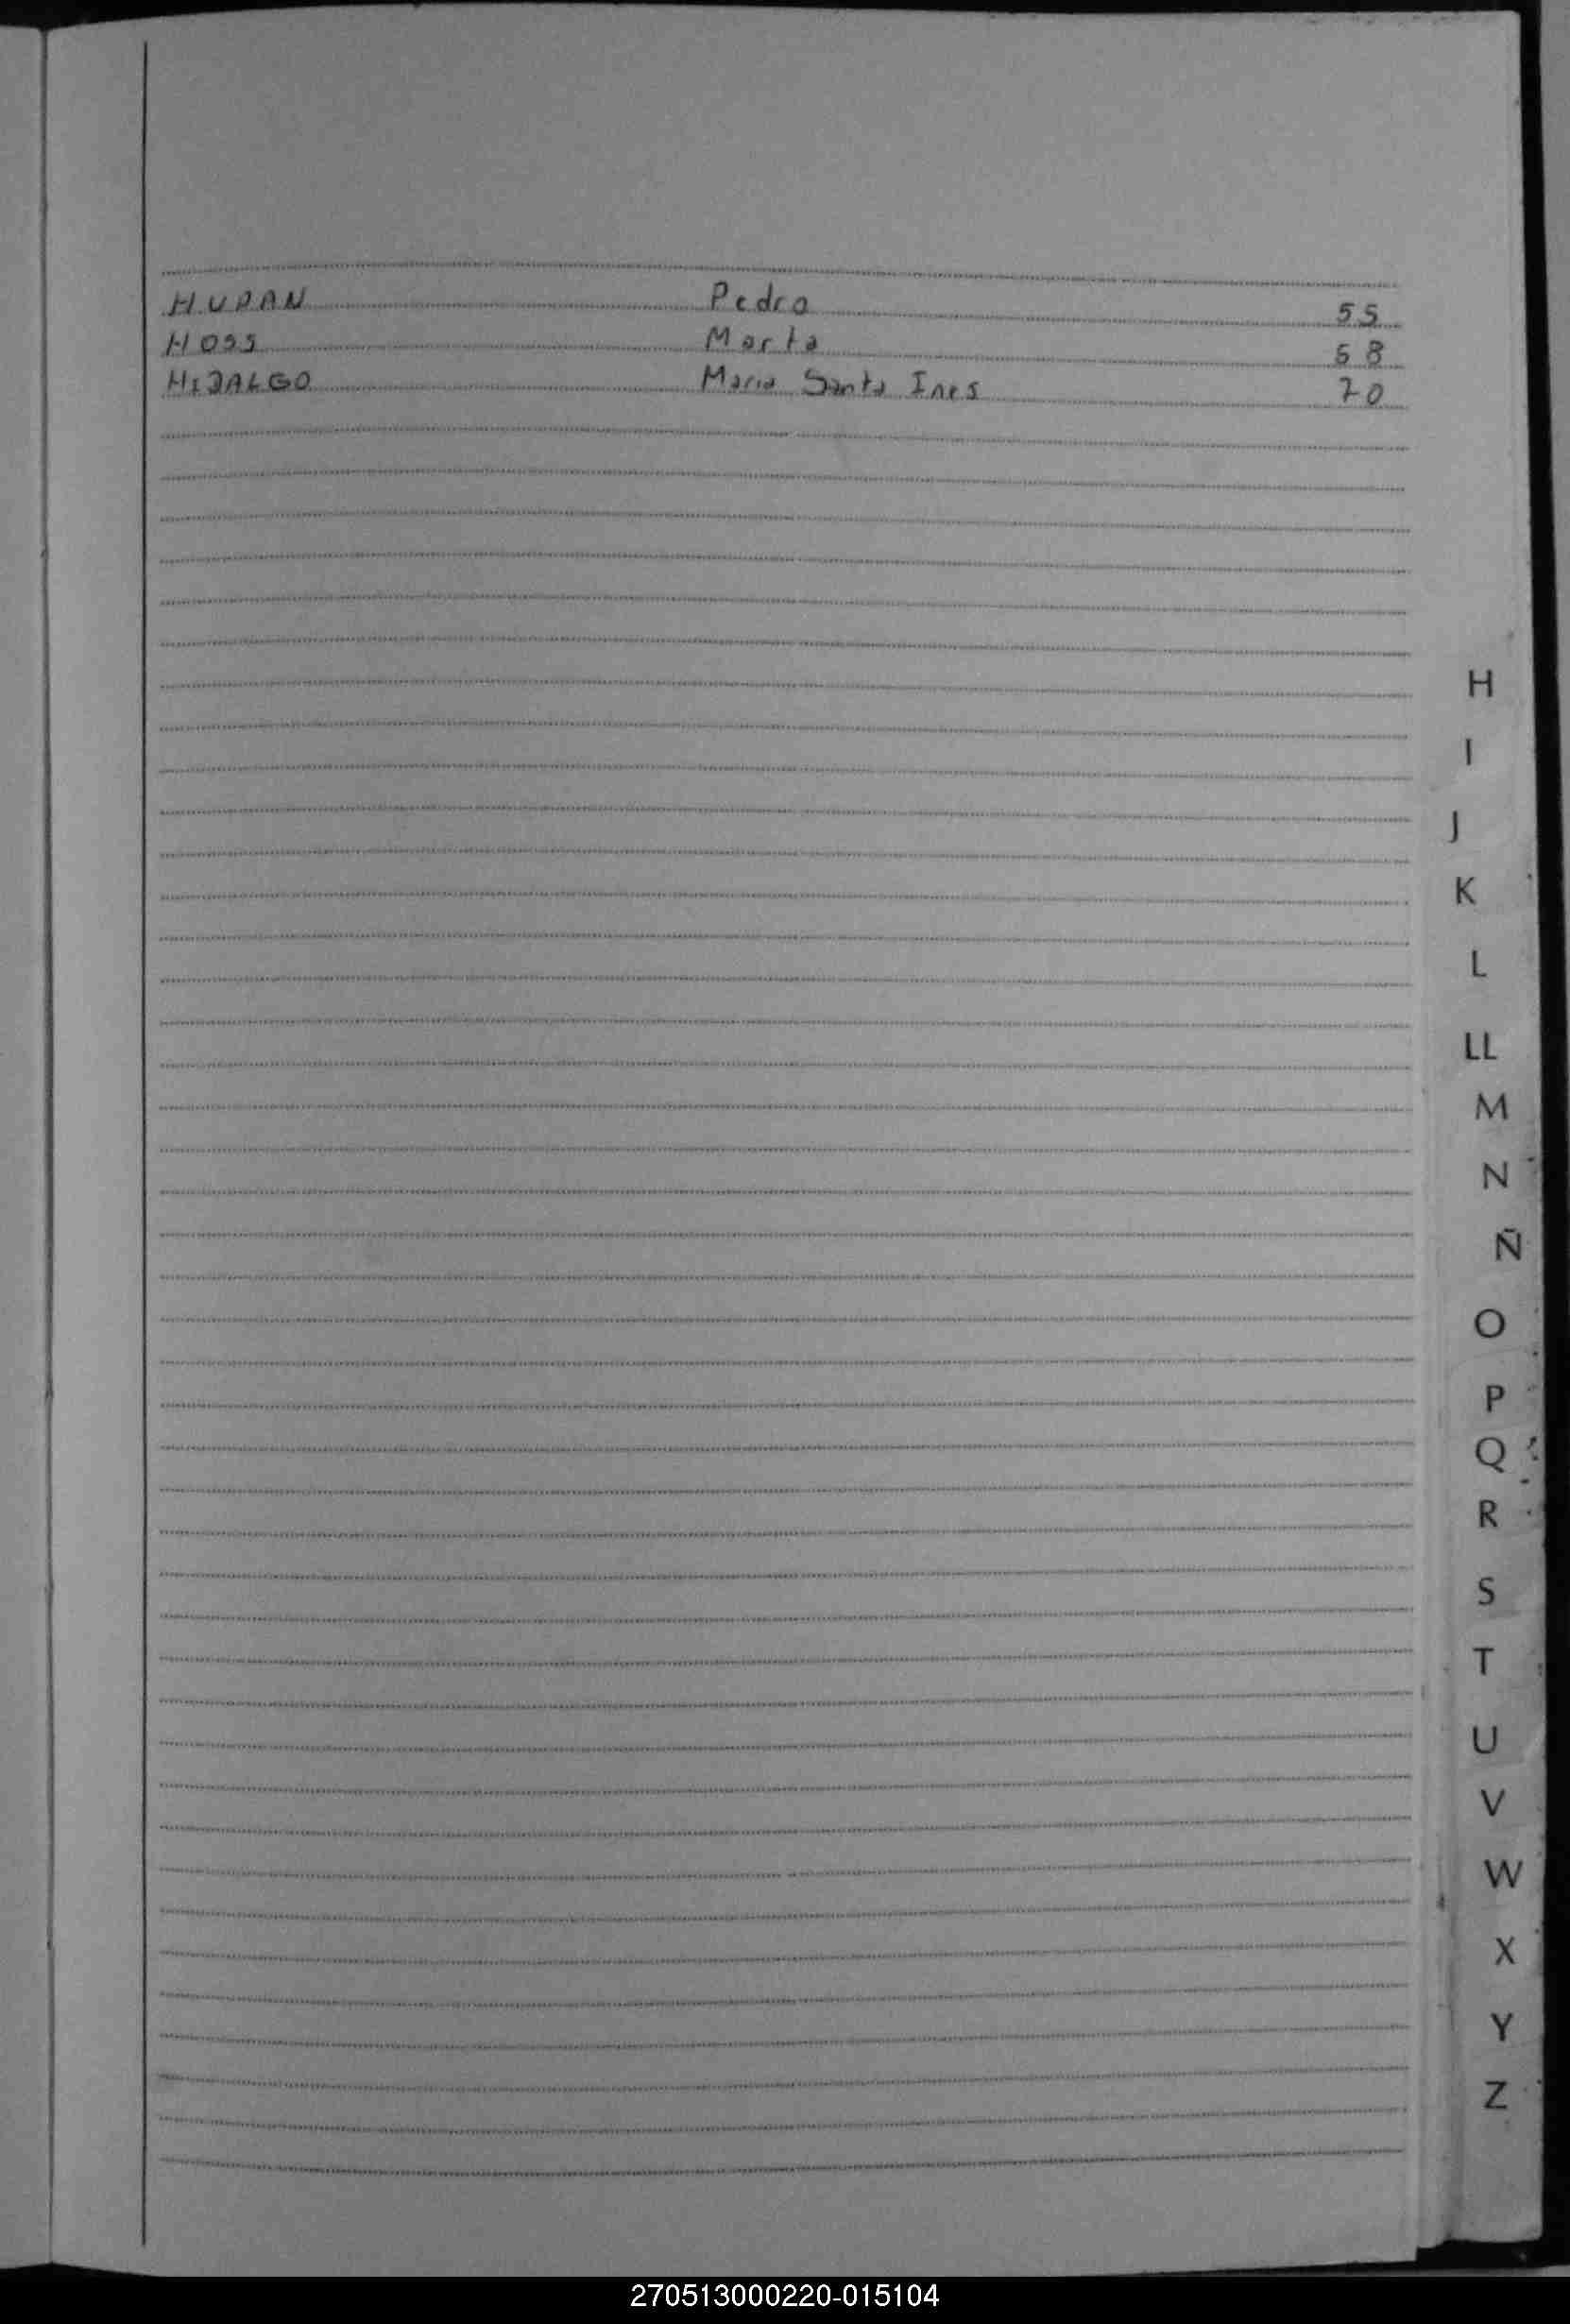 HUDAN Pedro 55
HOSS Marta 58
HIDALGO Maria Santa Ines 70
H
I
J
K
L
LL
M
N
Ñ
O
P
Q
R
S
T
U
V
W
X
Y
Z
270513000220-015104